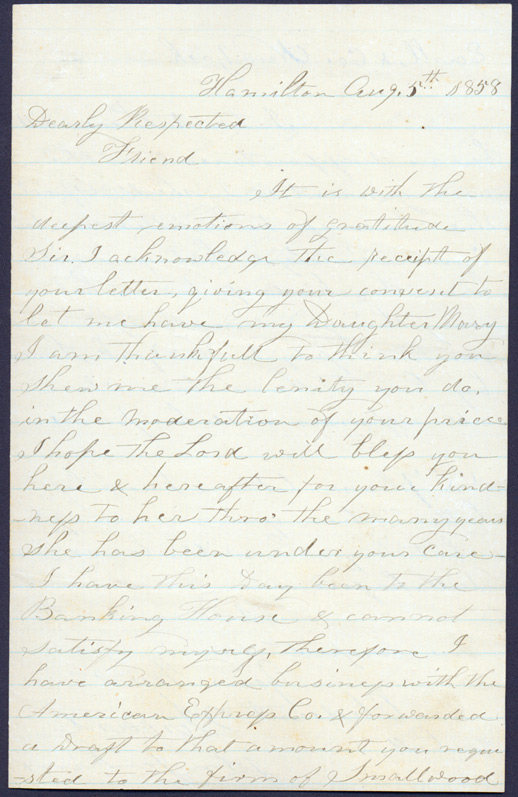 Hamilton Aug. 5th 1858
Dearly Respected
Friend
It is with the
deepest emotions of gratitude
Sir. I acknowledge the receipt of
your letter, giving your consent to
let me have my Daughter Mary
I am thankfull to think you
shew me the lenity you do,
in the moderation of your price
I hope the Lord will bless you
here & hereafter for your kind-
-ness to her thro' the many years
she has been under your care-
I have this Day been to the
Banking House & cannot
satisfy myself, therefore I
have arranged business with the
American Express Co. & forwarded
a draft to that amount you reque
-sted to the firm of Smallwood